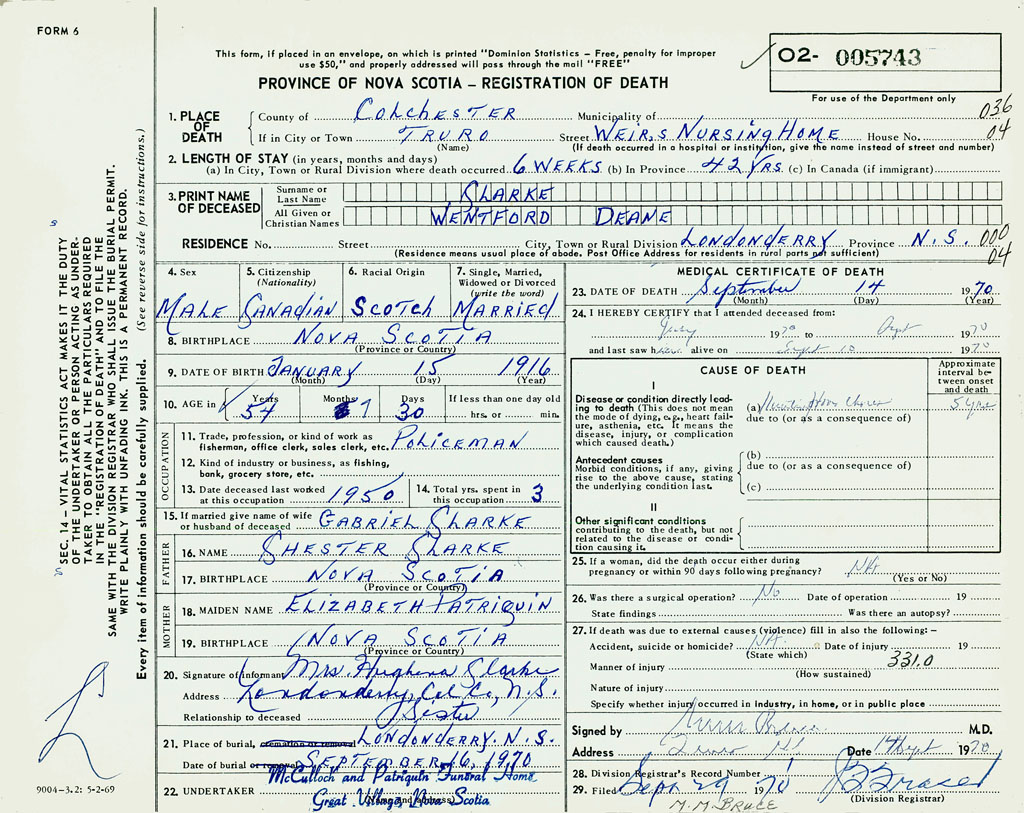 FORM 6
This form, if placed in an envelope, on which is printed "Dominion Statistics – Free, penalty for improper
use $50," and properly addressed will pass through the mail "FREE"
PROVINCE OF NOVA SCOTIA – REGISTRATION OF DEATH
O2- 005743
For use of the Department only
036
04
1. PLACE OF DEATH
County of COLCHESTER Municipality of
If in City or Town TRURO Street WEIR,S NURSING HOME House No.
(Name) (If death occurred in a hospital or institution, give the name instead of street and number)
2. LENGTH OF STAY (in years, months and days)
(a) In City, Town or Rural Division where death occurred 6 WEEKS (b) In Province 42 YRS (c) In Canada (if immigrant)
3. PRINT NAME OF DECEASED
Surname or Last Name CLARKE
All Given or Christian Names WENTFORD DEANE
RESIDENCE No. Street City, Town or Rural Division LONDONDERRY Province N.S. 000
(Residence means usual place of abode. Post Office Address for residents in rural parts not sufficient) 04
4. Sex MALE
5. Citizenship (Nationality) CANADIAN
6. Racial Origin SCOTCH
7. Single, Married, Widowed or Divorced (write the word) MARRIED
8. BIRTHPLACE NOVA SCOTIA
(Province or Country)
9. DATE OF BIRTH JANUARY 15 1916
(Month) (Day) (Year)
10. AGE in Years 54 Months 7 Days 30 If less than one day old hrs. or min.
OCCUPATION
11. Trade, profession, or kind of work as
fisherman, office clerk, sales clerk, etc. POLICEMAN
12. Kind of industry or business, as fishing,
bank, grocery store, etc.
13. Date deceased last worked at this occupation 1950
14. Total yrs. spent in this occupation 3
15. If married give name of wife
or husband of deceased GABRIEL CLARKE
FATHER
16. NAME CHESTER CLARKE
17. BIRTHPLACE NOVA SCOTIA
(Province or Country)
MOTHER
18. MAIDEN NAME ELIZABETH PATRIQUIN
19. BIRTHPLACE NOVA SCOTIA
(Province or Country)
20. Signature of informant Mrs. Hughena Clarke
Address Londonderry, Col Co, N.S.
Relationship to deceased Sister
21. Place of burial, cremation or removal LONDONDERRY. N.S.
Date of burial or removal SEPTEMBER 16, 1970
22. UNDERTAKER McCulloch and Patriquin Funeral Home
Great Village, Nova Scotia
(Name and address)
MEDICAL CERTIFICATE OF DEATH
23. DATE OF DEATH September 14 1970
(Month) (Day) (Year)
24. I HEREBY CERTIFY that I attended deceased from:
1970 to Sept 1970
and last saw h alive on Sept 10 1970
CAUSE OF DEATH
Approximate interval between onset and death
I
Disease or condition directly leading to death (This does not mean the mode of dying, e.g., heart failure, asthenia, etc. It means the disease, injury, or complication which caused death.)
(a) Chorea 5 yrs
due to (or as a consequence of)
Antecedent causes
Morbid conditions, if any, giving rise to the above cause, stating the underlying condition last.
(b)
due to (or as a consequence of)
(c)
II
Other significant conditions
contributing to the death, but not related to the disease or condition causing it.
25. If a woman, did the death occur either during
pregnancy or within 90 days following pregnancy? NA
(Yes or No)
26. Was there a surgical operation? No Date of operation 19
State findings Was there an autopsy?
27. If death was due to external causes (violence) fill in also the following: –
Accident, suicide or homicide? NA Date of injury 19
(State which)
331.0
Manner of injury
(How sustained)
Nature of injury
Specify whether injury occurred in industry, in home, or in public place
Signed by M.D.
Address Truro NS Date 14 Sept 1970
28. Division Registrar's Record Number
29. Filed Sept 29 1970
(Division Registrar)
M.M. BRUCE
SEC. 14 – VITAL STATISTICS ACT MAKES IT THE DUTY
OF THE UNDERTAKER OR PERSON ACTING AS UNDERTAKER TO OBTAIN ALL THE PARTICULARS REQUIRED
IN THE "REGISTRATION OF DEATH" AND TO FILE THE
SAME WITH THE DIVISION REGISTRAR WHO SHALL ISSUE THE BURIAL PERMIT.
WRITE PLAINLY WITH UNFADING INK. THIS IS A PERMANENT RECORD.
Every item of information should be carefully supplied. (See reverse side for instructions.)
9004-3.2: 5-2-69